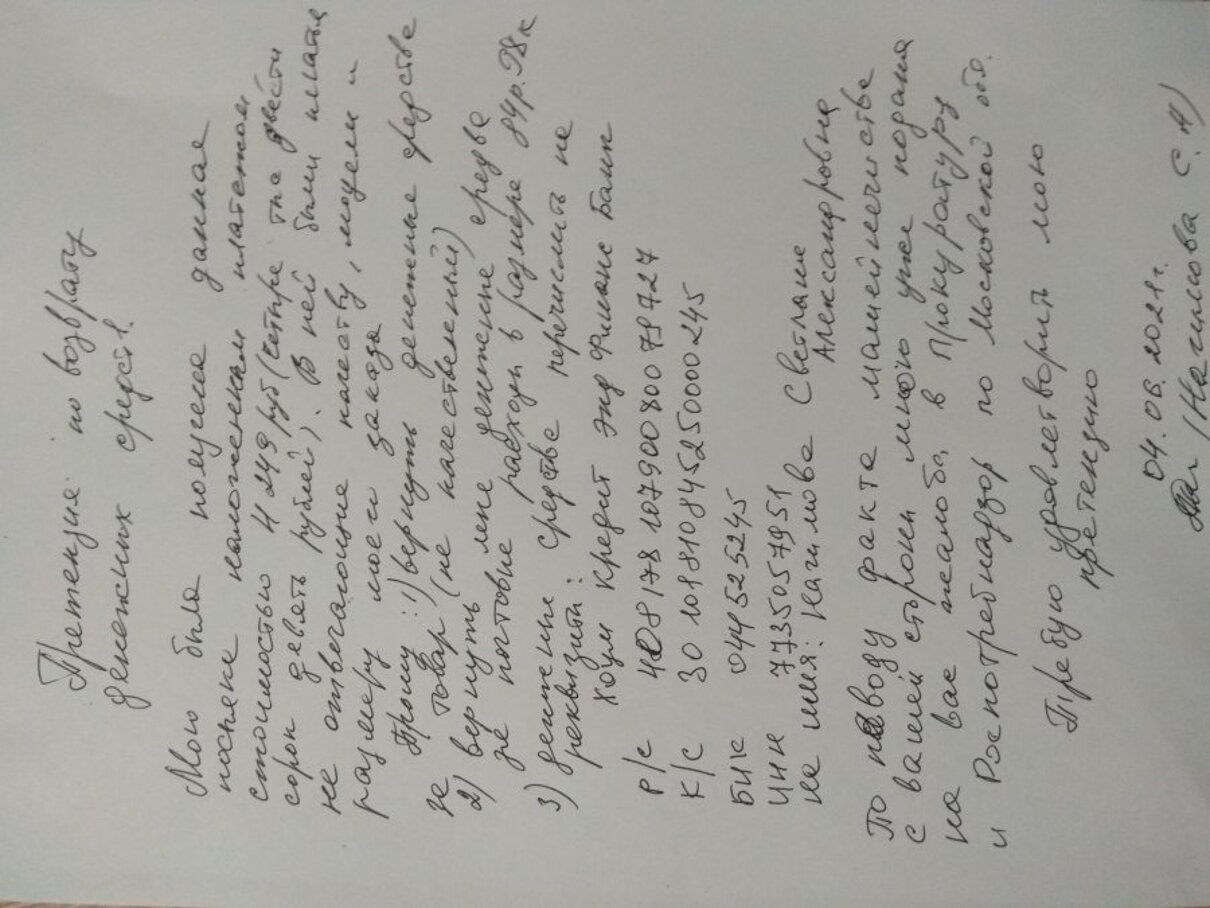 Претензия по возврату
денежных средств.
Мною была получена данная
посылка наложенным платежом
стоимостью 4 249 руб (четыре тыс двести
сорок девять рублей). В ней были платья
не отвечающие качеству, модели и
размеру моего заказа
Прошу: 1) вернуть денежные средства
за товар (не качественный)
2) вернуть мне денежные средва
за почтовые расходы в размере 84р.98к
3) денежные средства перечислить на
реквизиты:
Хоум кредит энд Финанс Банк
Р/с 40817810790080079727
К/с 30101810845250000245
БИК 044525245
ИНН 7735057951
на имя: Нагимова Светлана
Александровна
По поводу факта машейничества
с вашей стороны мною уже подана
на вас жалоба в Прокуратуру
и Роспотребнадзор по Московской обл.
Требую удовлетворить мою
претензию
04.06.2021г.
(Нагимова С.А)